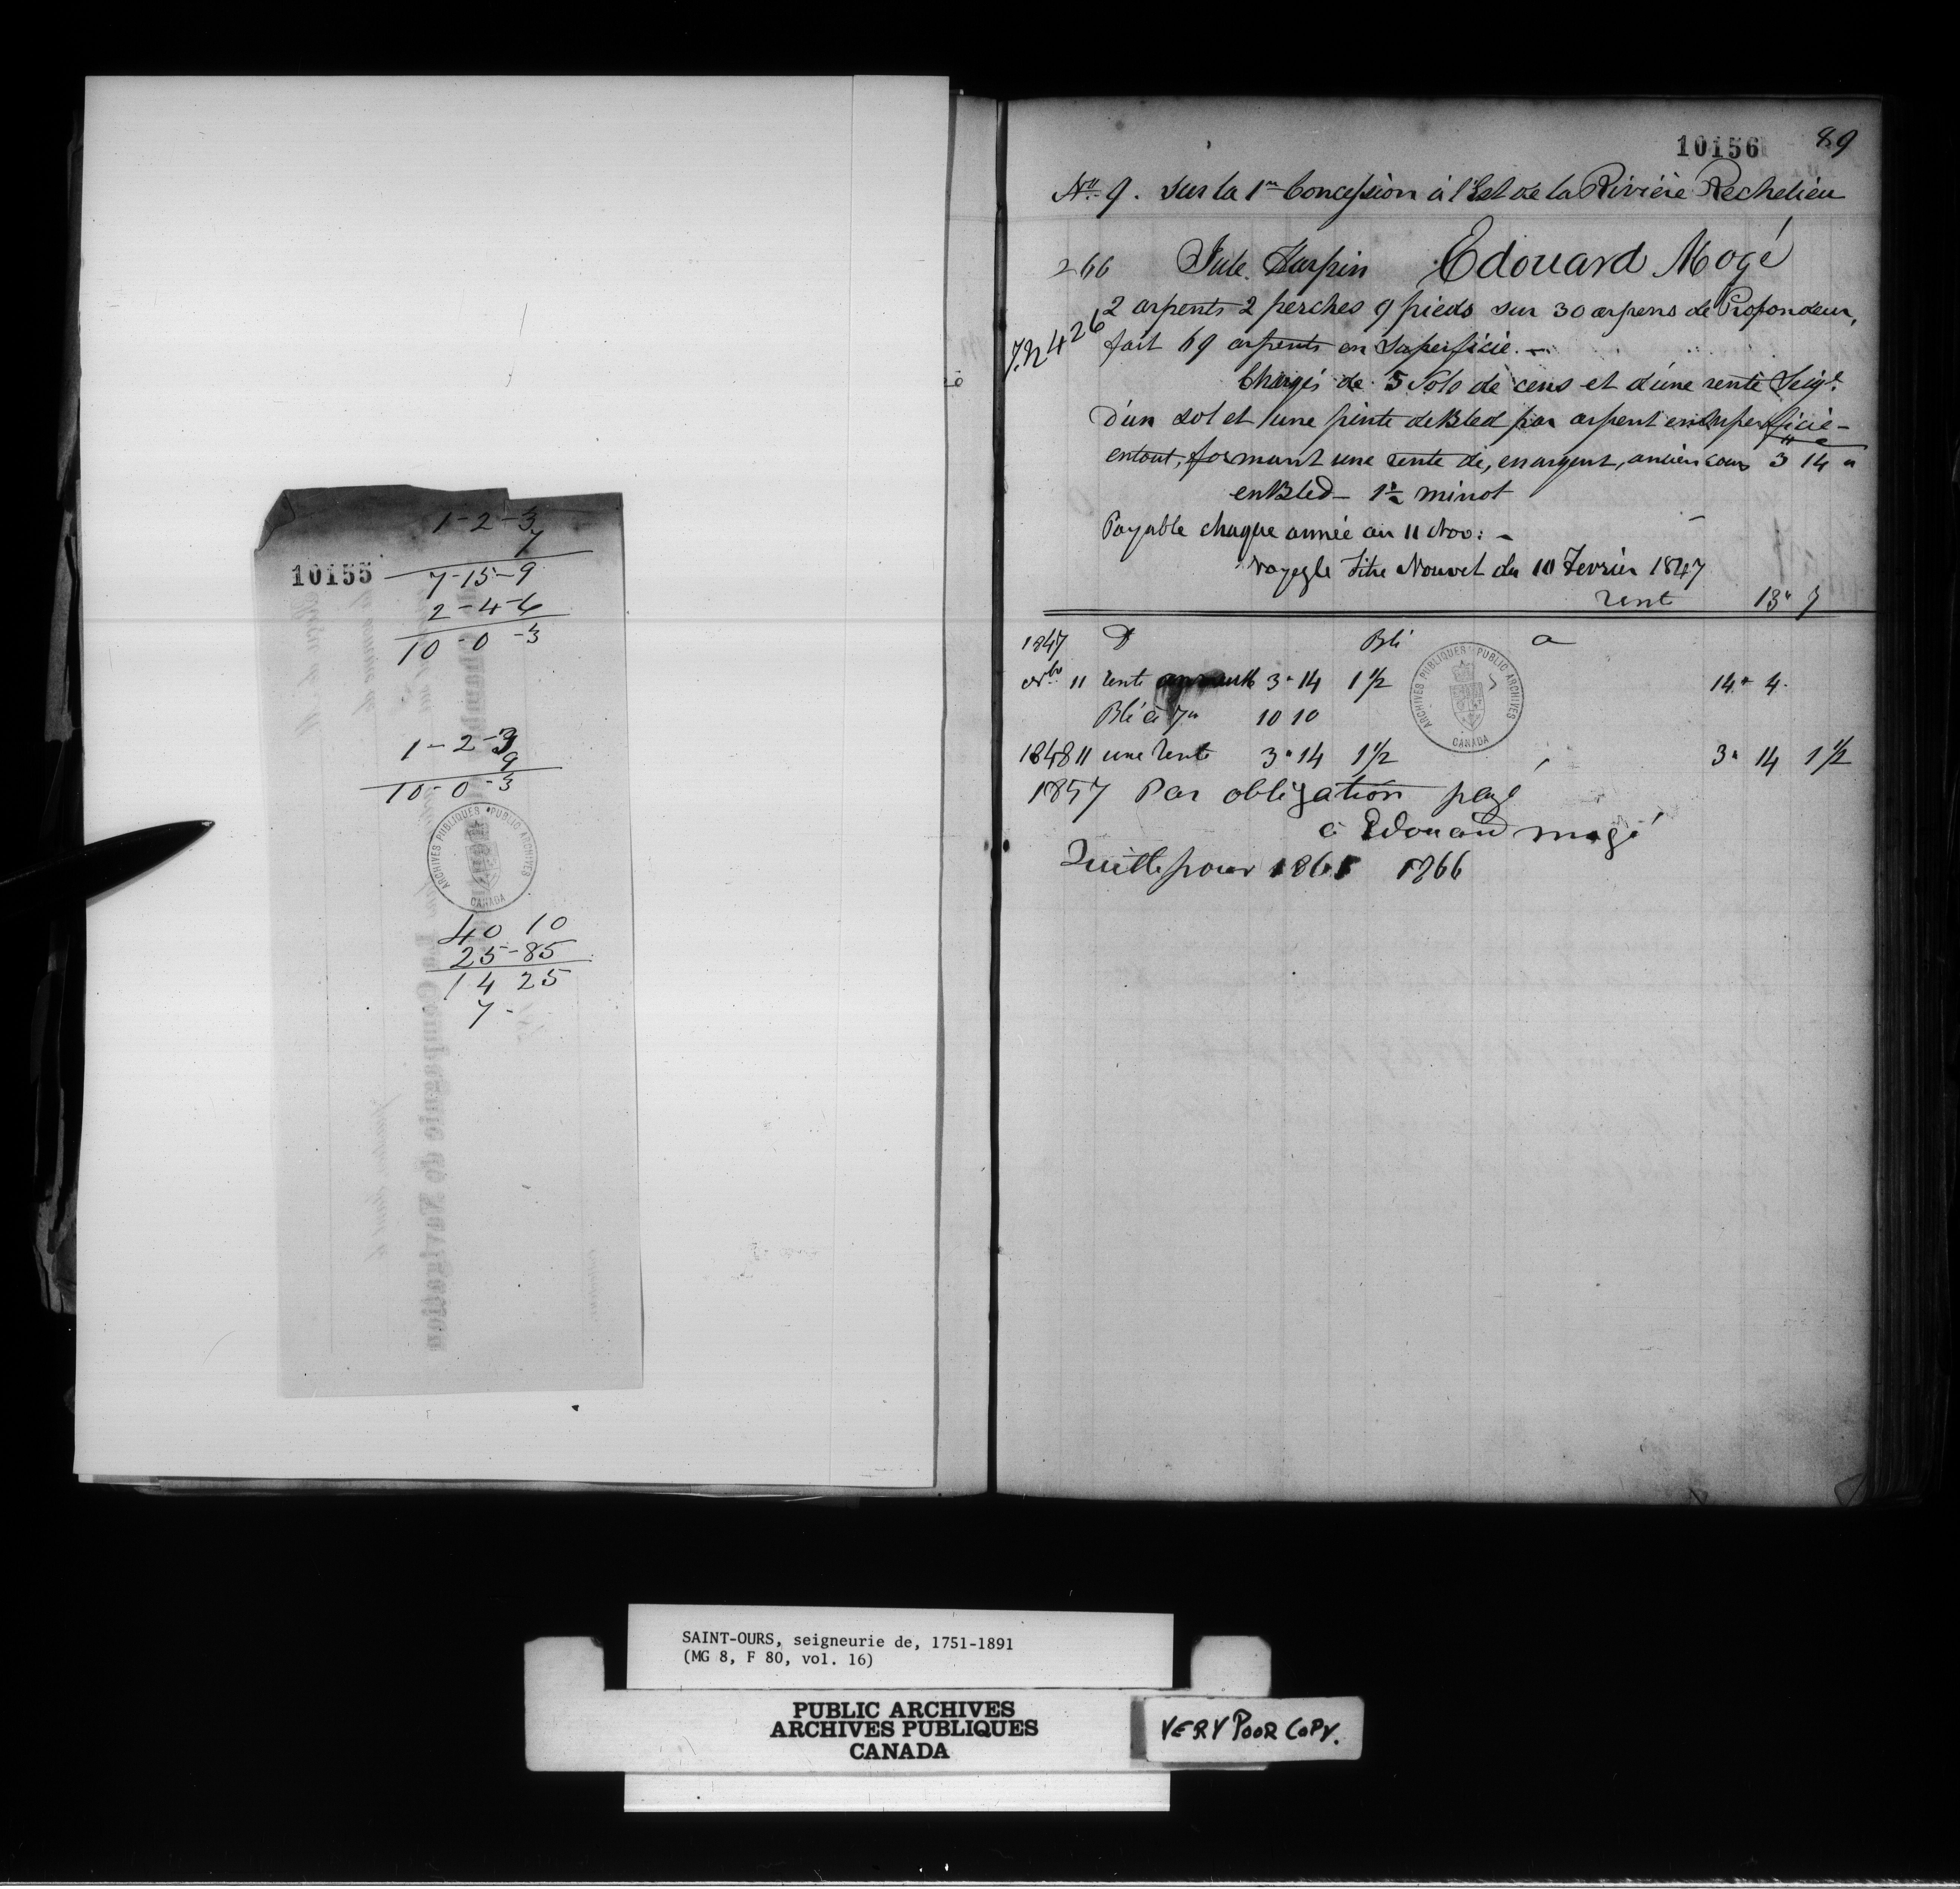 10155
1-2-3
7
7-15-9
2-4-6
10-0-3
1-2-3
9
10-0-3
ARCHIVES PUBLIQUES PUBLIC ARCHIVES
CANADA
40 10
25-85
14 25
7-
10156 89
No. 9. sur la 1re Concession à l'Est de la Rivière Rechelieu
266 Jule Harpin Edouard Mogé
2 arpents 2 perches 9 pieds sur 30 arpens de Profondeur,
426
fait 69 arpents en Superficie.—
Chargés de 5 Sols de cens et d'une rente Seigl.
D'un sol et une pinte de Bled par arpent en superficie—
entout, formant une rente de, en argent, ancien cours 3 14 "
en Bled— 1½ minot
Payable chaque année au 11 Nov:—
voyez le titre Nouvel du 10 Fevrier 1847
rent 13" 7
1847 D Blé a
Nbre 11 rente 3" 14 1½ 14" 4
Blé à 7" 10 10
ARCHIVES PUBLIQUES PUBLIC ARCHIVES
CANADA
1848 11 une rente 3" 14 1½ 3" 14 1½
1857 Par obligation payé
à Edouard mogé
Quitte pour 1865 1866
SAINT-OURS, seigneurie de, 1751-1891
(MG 8, F 80, vol. 16)
PUBLIC ARCHIVES
ARCHIVES PUBLIQUES
CANADA
VERY POOR COPY.